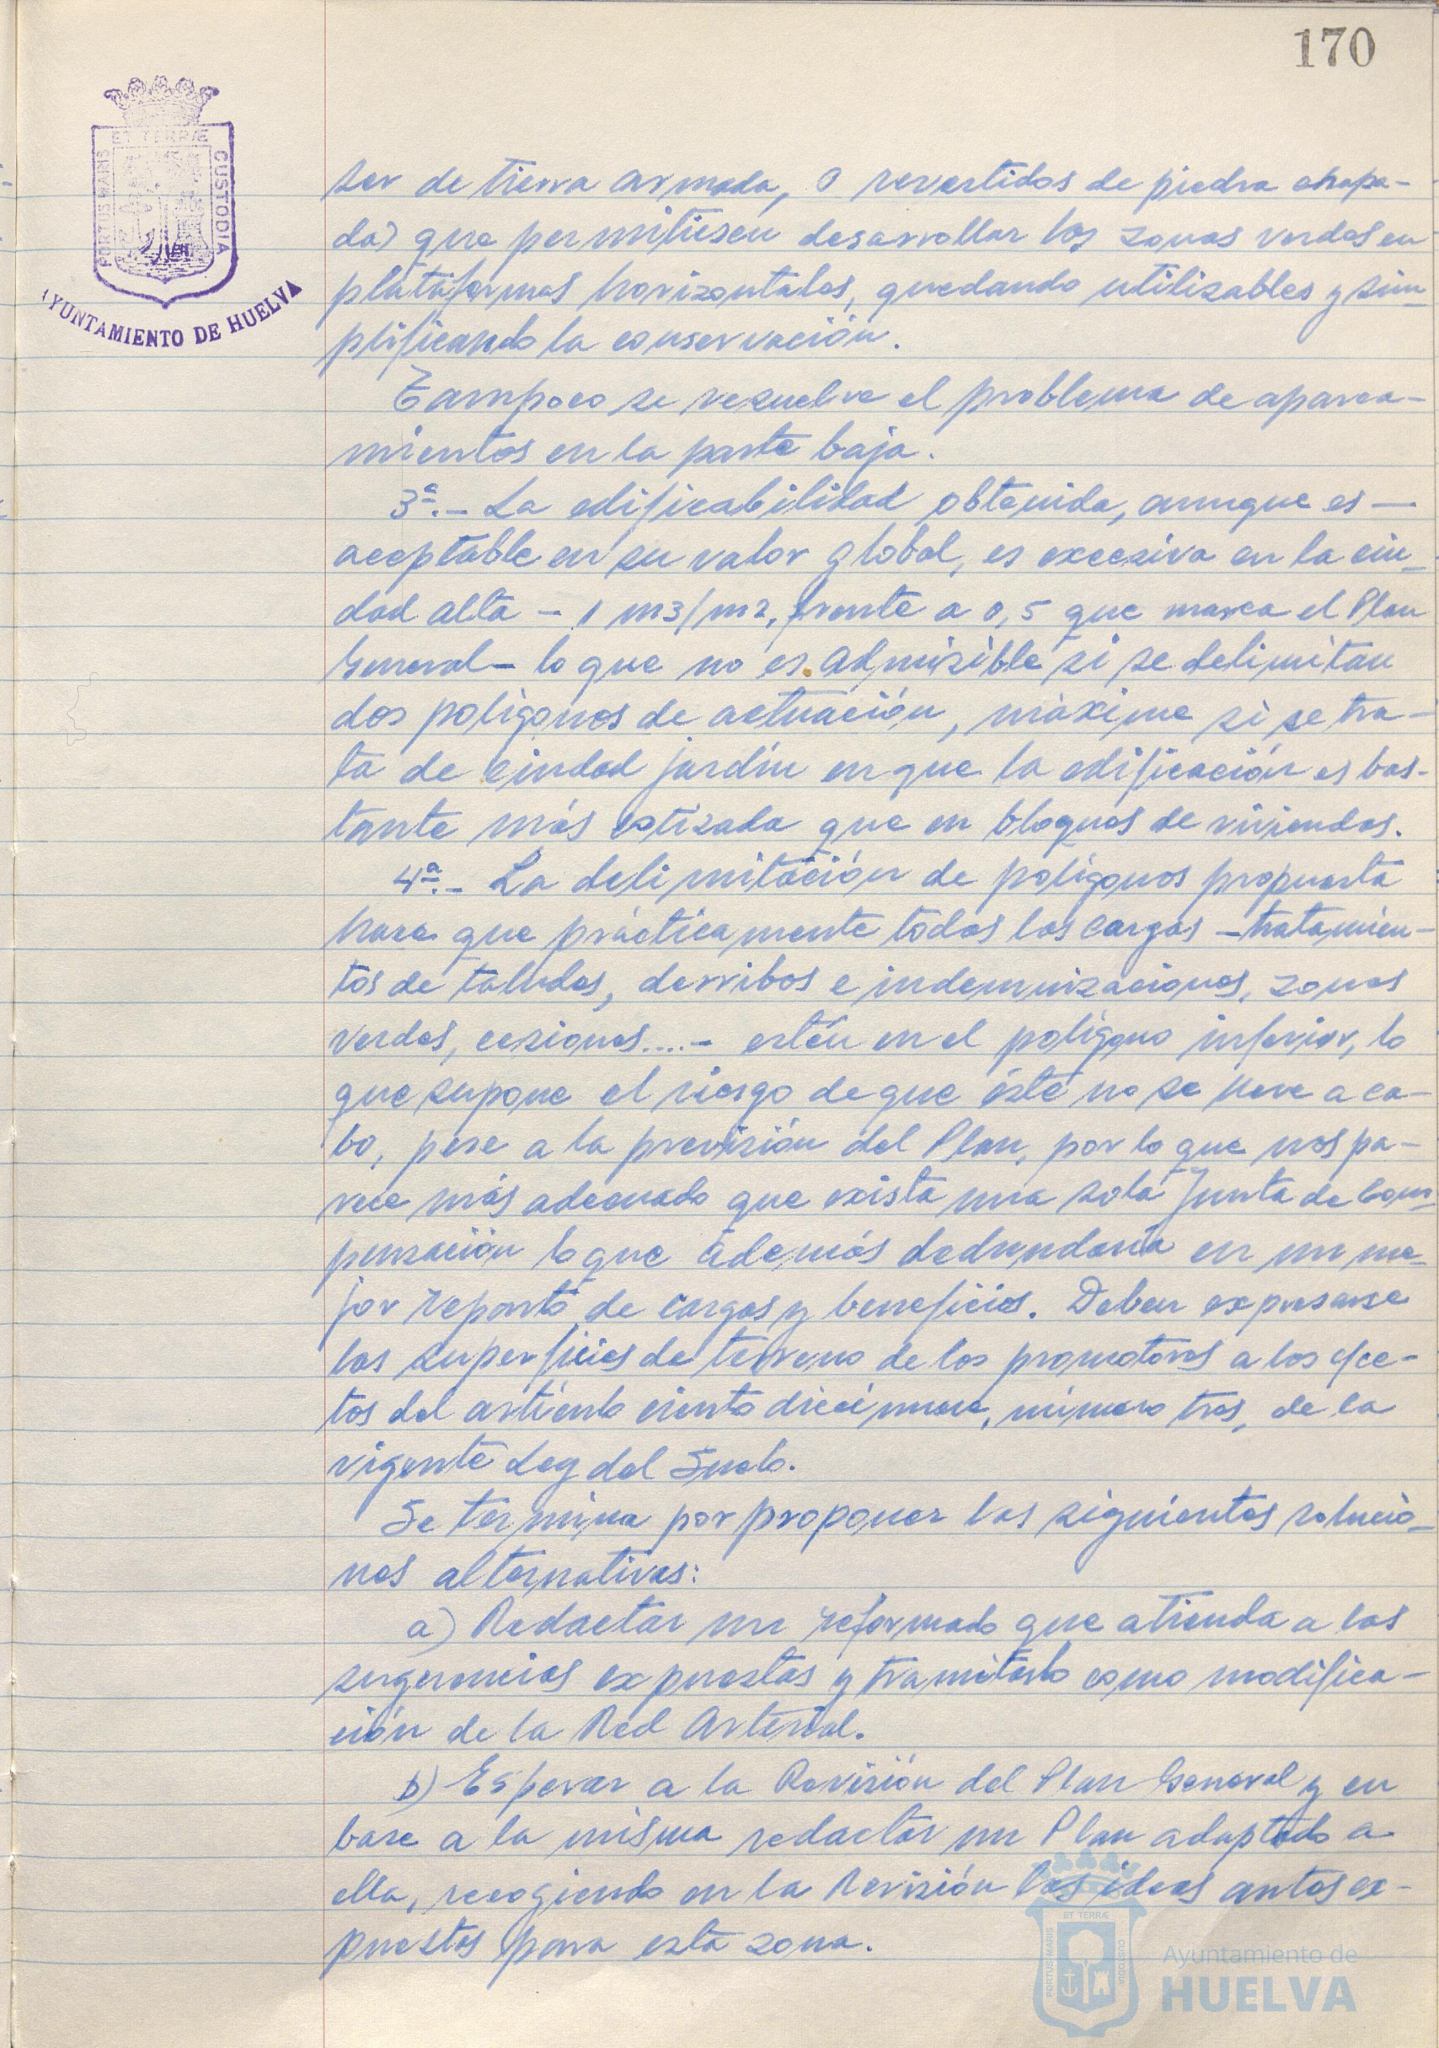 170
ET TERRÆ
PORTUS MARIS
CUSTODIA
AYUNTAMIENTO DE HUELVA
ser de tierra armada, o revestidos de piedra chapa-
da) que permitiesen desarrollar las zonas verdes en
plataformas horizontales, quedando utilizables y sim-
plificando la conservación.
Tampoco se resuelve el problema de aparca-
mientos en la parte baja.
3ª.- La edificabilidad obtenida, aunque es —
aceptable en su valor global, es excesiva en la ciu-
dad alta - 1 m3/m2, frente a 0,5 que marca el Plan
General - lo que no es admisible si se delimitan
dos polígonos de actuación, máxime si se tra-
ta de ciudad jardín en que la edificación es bas-
tante más cotizada que en bloques de viviendas.
4ª.- La delimitación de polígonos propuesta
hace que prácticamente todas las cargas - tratamien-
tos de taludes, derribos e indemnizaciones, zonas
verdes, cesiones....- estén en el polígono inferior, lo
que supone el riesgo de que éste no se lleve a ca-
bo, pese a la previsión del Plan, por lo que nos pa-
rece más adecuado que exista una sola Junta de Com-
pensación lo que además dedundaría en un me-
jor reparto de cargas y beneficios. Deben expresarse
las superficies de terreno de los promotores a los efec-
tos del artículo ciento diecinueve, número tres, de la
vigente Ley del Suelo.
Se termina por proponer las siguientes solucio-
nes alternativas:
a) Redactar un reformado que atienda a las
sugerencias expuestas y tramitarlo como modifica-
ción de la Red Arterial.
b) Esperar a la Revisión del Plan General y en
base a la misma redactar un Plan adaptado a
ella, recogiendo en la Revisión las ideas antes ex-
puestas para esta zona.
ET TERRÆ
PORTUS MARIS
CUSTODIA
Ayuntamiento de
HUELVA